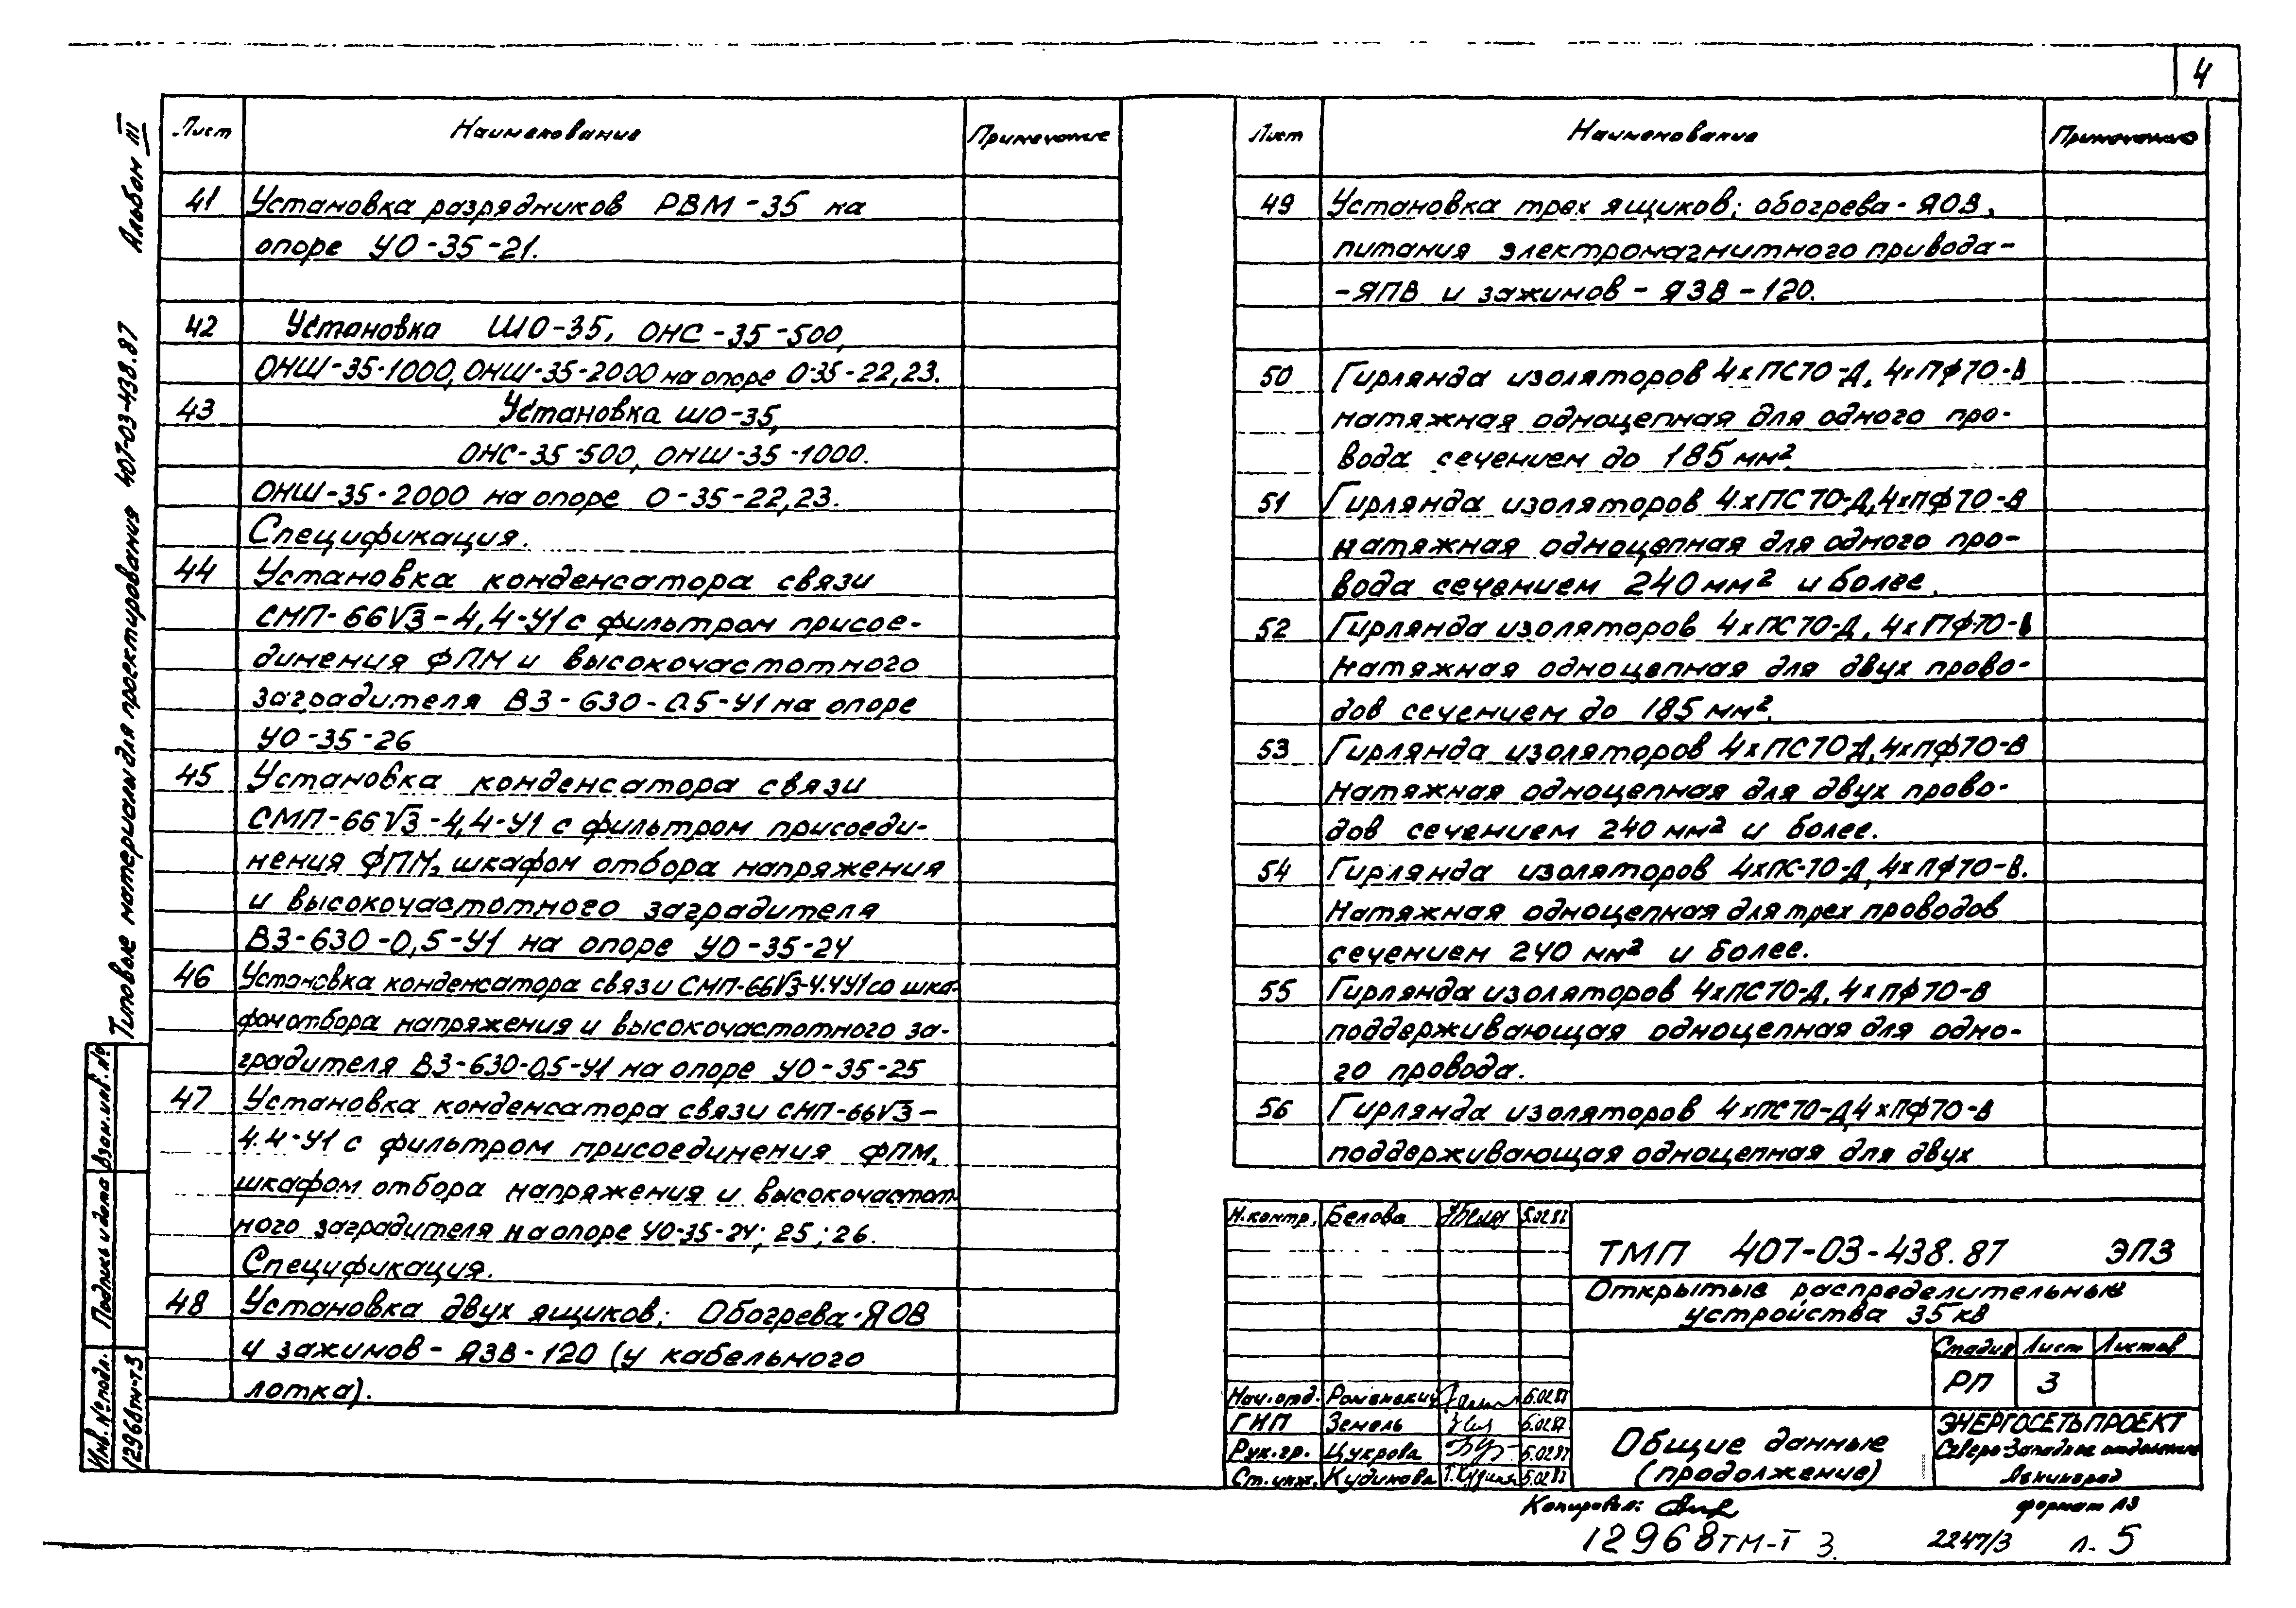 4
Альбом III
Типовые материалы для проектирования 407-03-438.87
Лист Наименование Примечание
41 Установка разрядников РВМ-35 на
опоре УО-35-21.
42 Установка ШО-35, ОНС-35-500,
ОНШ-35-1000, ОНШ-35-2000 на опоре О-35-22,23.
43 Установка ШО-35,
ОНС-35-500, ОНШ-35-1000.
ОНШ-35-2000 на опоре О-35-22,23.
Спецификация.
44 Установка конденсатора связи
СМП-66√3-4,4-У1 с фильтром присое-
динения ФПМ и высокочастотного
заградителя ВЗ-630-0.5-У1 на опоре
УО-35-26
45 Установка конденсатора связи
СМП-66√3-4,4-У1 с фильтром присоеди-
нения ФПМ, шкафом отбора напряжения
и высокочастотного заградителя
ВЗ-630-0,5-У1 на опоре УО-35-24
46 Установка конденсатора связи СМП-66√3-4.4У1 со шка-
фом отбора напряжения и высокочастотного за-
градителя ВЗ-630-0,5-У1 на опоре УО-35-25
47 Установка конденсатора связи СМП-66√3-
4.4-У1 с фильтром присоединения ФПМ,
шкафом отбора напряжения и высокочастот-
ного заградителя на опоре УО-35-24; 25; 26.
Спецификация.
48 Установка двух ящиков; Обогрева-ЯОВ
и зажимов-ЯЗВ-120 (у кабельного
лотка).
Лист Наименование Примечание
49 Установка трех ящиков; обогрева-ЯОВ,
питания электромагнитного привода-
-ЯПВ и зажимов-ЯЗВ-120.
50 Гирлянда изоляторов 4хПС70-Д, 4хПФ70-В
натяжная одноцепная для одного про-
вода сечением до 185 мм².
51 Гирлянда изоляторов 4хПС70-Д, 4хПФ70-В
натяжная одноцепная для одного про-
вода сечением 240 мм² и более.
52 Гирлянда изоляторов 4хПС70-Д, 4хПФ70-В
натяжная одноцепная для двух прово-
дов сечением до 185 мм².
53 Гирлянда изоляторов 4хПС70-Д, 4хПФ70-В
натяжная одноцепная для двух прово-
дов сечением 240 мм² и более.
54 Гирлянда изоляторов 4хПС-70-Д, 4хПФ70-В.
Натяжная одноцепная для трех проводов
сечением 240 мм² и более.
55 Гирлянда изоляторов 4хПС70-Д, 4хПФ70-В
поддерживающая одноцепная для одно-
го провода.
56 Гирлянда изоляторов 4хПС70-Д, 4хПФ70-В
поддерживающая одноцепная для двух
Н.контр. Белова 5.02.87
Нач.отд. Роменский 5.02.87
ГИП Земель 5.02.87
Рук.гр. Цукрова 5.02.87
Ст.инж. Кудинова 5.02.87
ТМП 407-03-438.87 ЭПЗ
Открытые распределительные
устройства 35 кВ
Стадия Лист Листов
РП 3
Общие данные
(продолжение)
ЭНЕРГОСЕТЬПРОЕКТ
Северо-Западное отделение
Ленинград
Копировал:
формат А3
12968тм-т 3.
2247/3 л. 5
Взам.инв.№
Подпись и дата
Инв.№ подл.
12968тм-т3